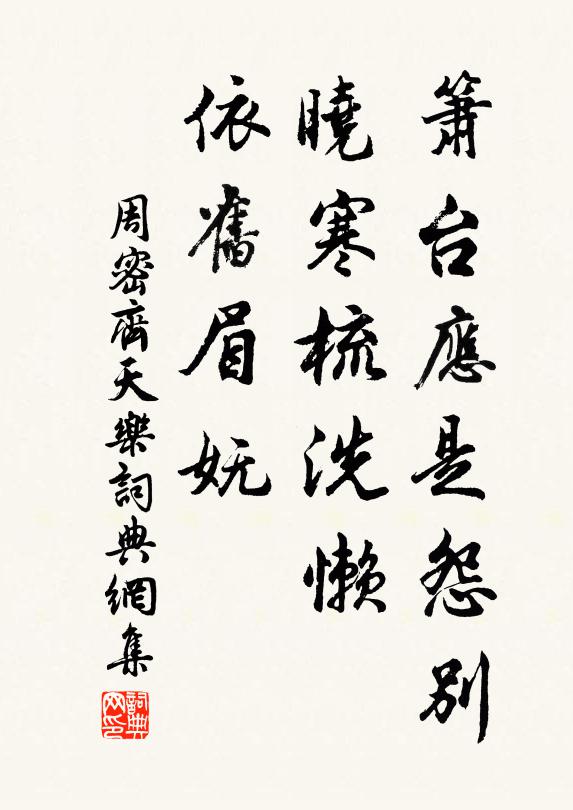 簫台應是怨別
曉寒梳洗懶
依舊眉嫵
周密齊天樂詞典網集
詞典網印